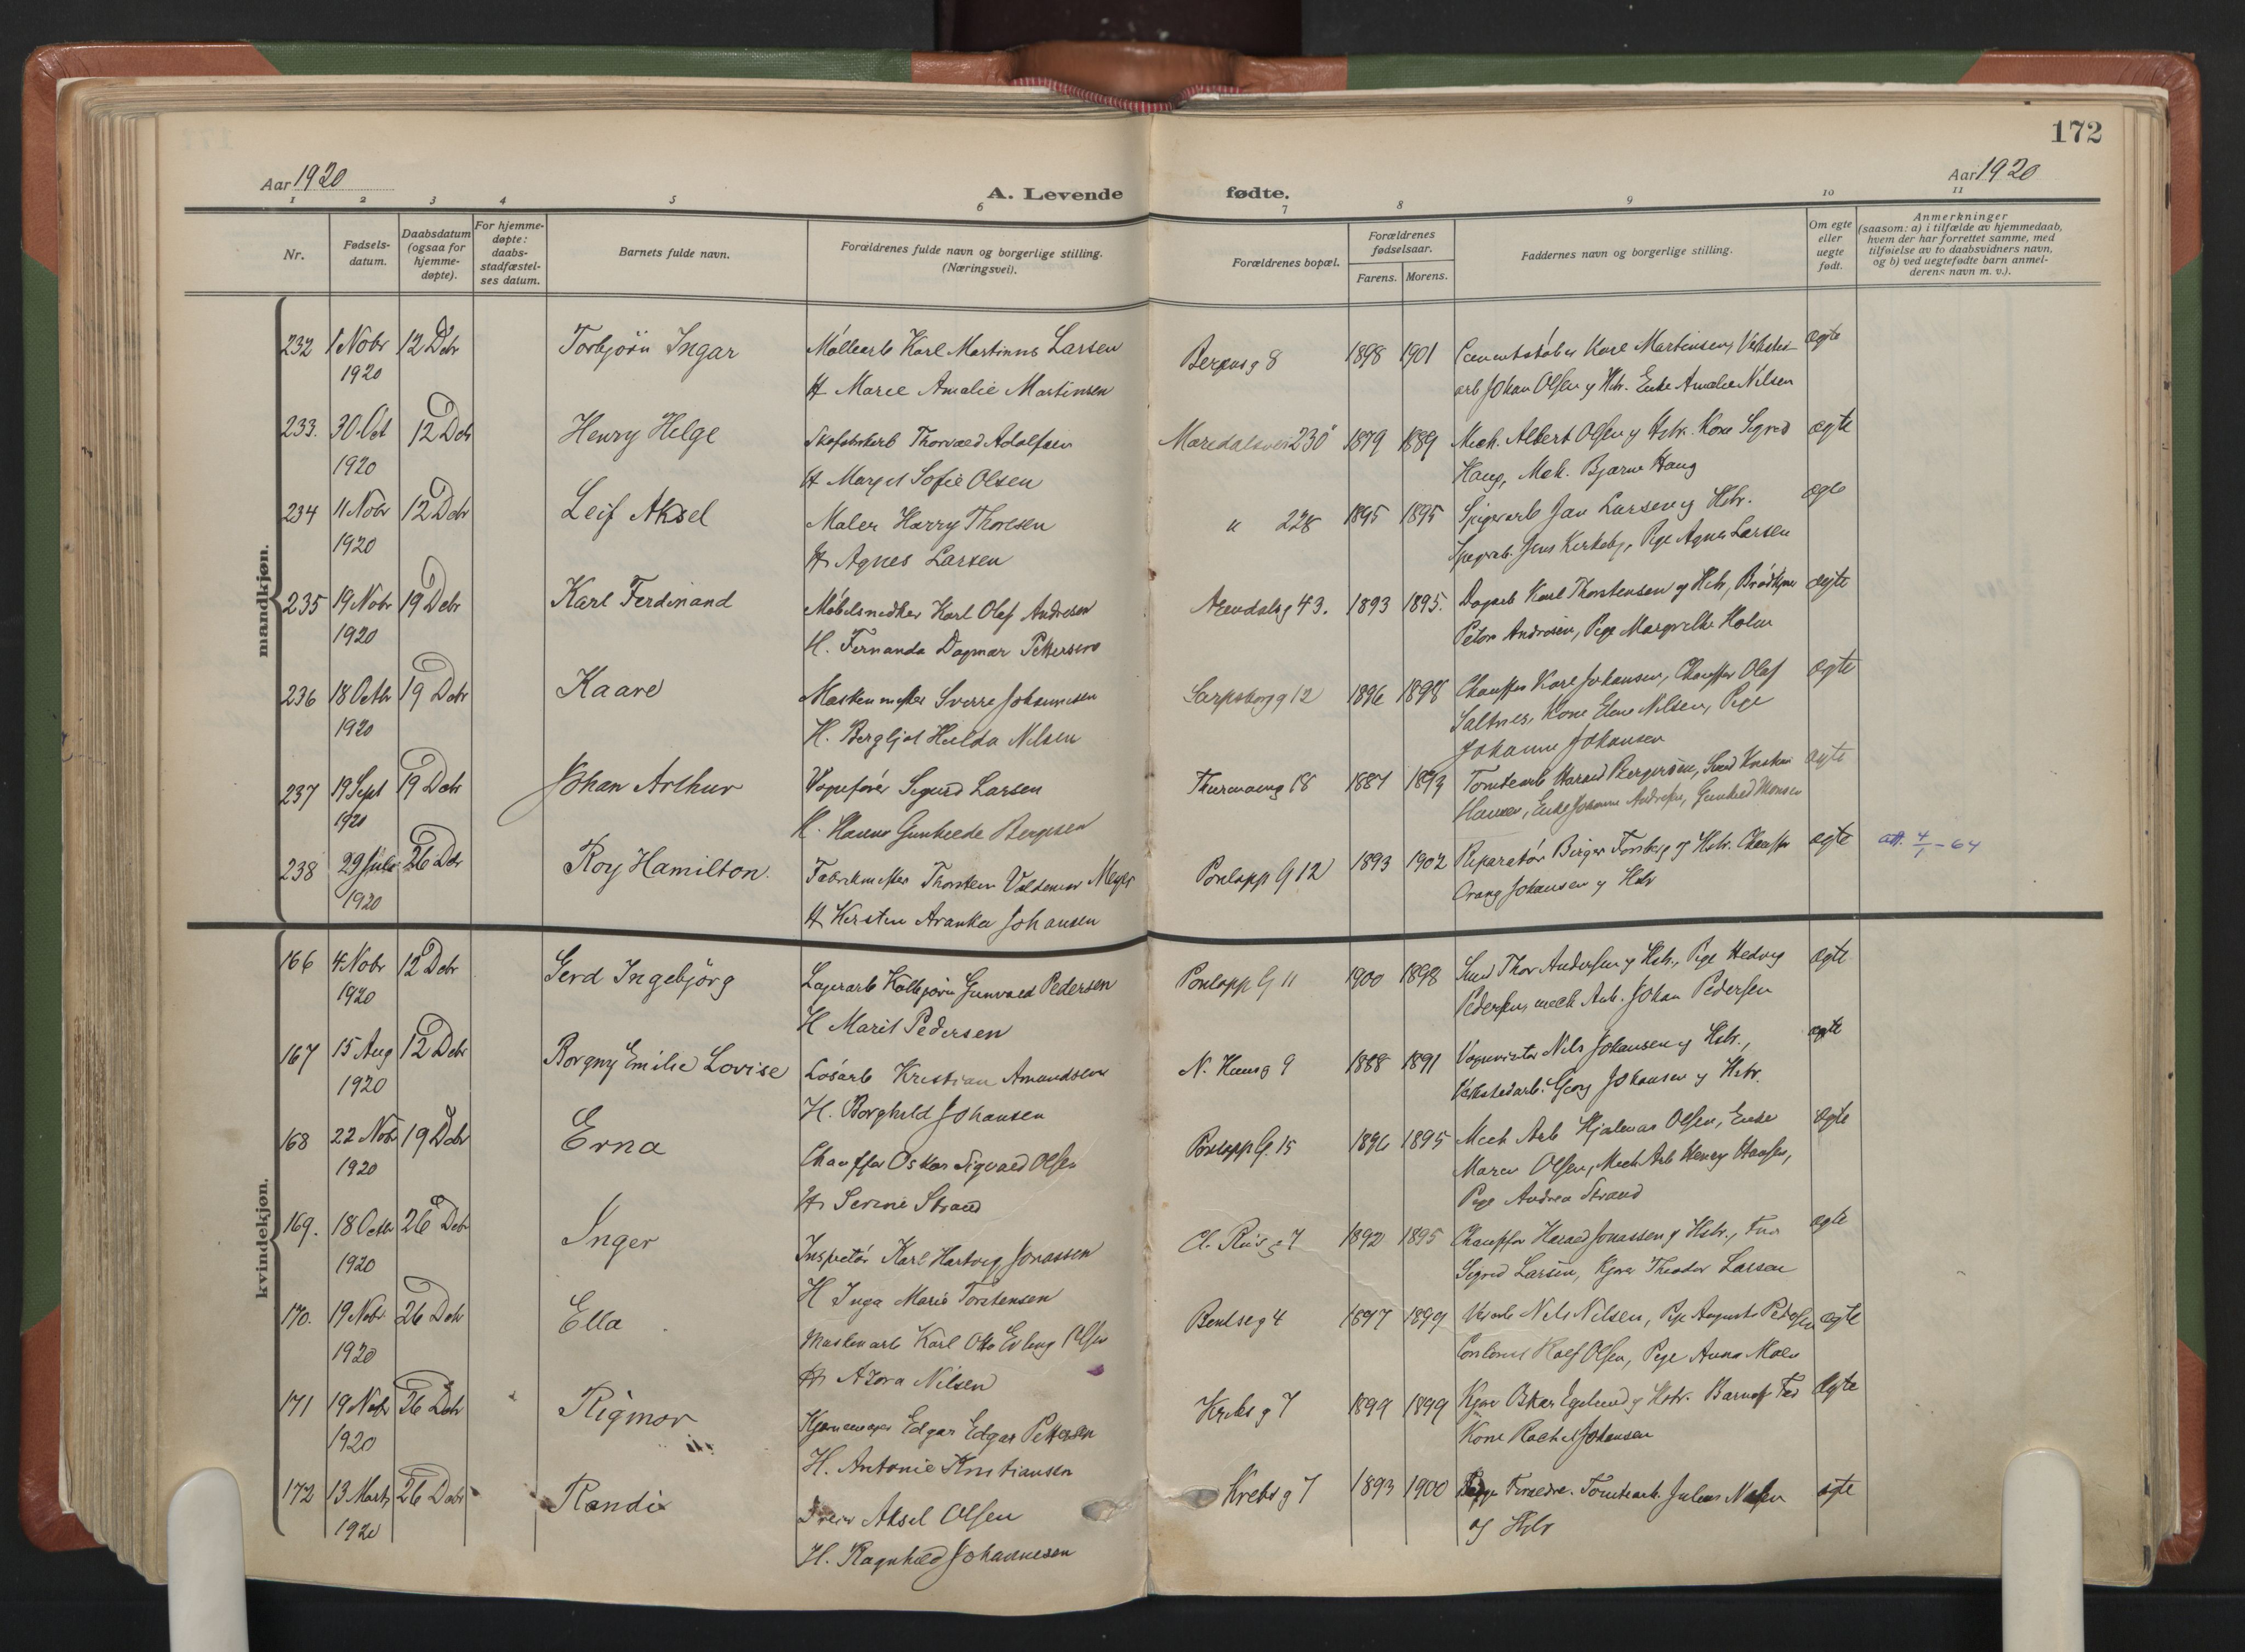 172
Aar 1920
A. Levende fødte.
Aar 1920
1 2 3 4 5 6 7 8 9 10 11
Nr.
Fødsels-
datum.
Daabsdatum
(ogsaa for
hjemme-
døpte).
For hjemme-
døpte:
daabs-
stadfæstel-
ses datum.
Barnets fulde navn.
Forældrenes fulde navn og borgerlige stilling.
(Næringsvei).
Forældrenes bopæl.
Forældrenes
fødselsaar.
Farens. Morens.
Faddernes navn og borgerlige stilling.
Om egte
eller
uegte
født.
Anmerkninger
(saasom: a) i tilfælde av hjemmedaab,
hvem der har forrettet samme, med
tilføielse av to daabsvidners navn,
og b) ved uegtefødte barn anmel-
derens navn m. v.).
mandkjøn.
232 1 Nobr 12 Debr Torbjörn Ingar Møllearb Karl Martinus Larsen Bergensg 8 1898 1901 Cementstøber Karl Martinsen, Veksted- ægte
1920 H Marie Amalie Martinsen arb Johan Olsen y Hstr. Enke Amalie Nilsen
233. 30 Oct 12 Debr Henry Helge Thorvald Adolfsen Maridalsvei 230 1879 1889 Mek. Albert Olsen y Hstr. Kone Sigrid ægte
1920 H Margit Sofie Olsen Haug, Mek. Bjarne Haug
234 11 Nobr 12 Debr Leif Aksel Maler Harry Thoresen " 228 1895 1895 Spigerarb Jan Larsen y Hstr. ægte
1920 H Agnes Larsen Jens Kirkeby, Pige Agnes Larsen
235 19 Nobr 19 Debr Karl Ferdinand Møbelsnedker Karl Olaf Andresen Arendalsg 43. 1893 1895. Karl Thorstensen y Hstr, ægte
1920 H. Fernanda Dagmar Pettersen Petra Andresen, Pige Margrethe Holm
236 18 Octbr 19 Debr Kaare Maskinmester Sverre Johannesen Sarpsborgg 12 1896 1898 Chauffør Karl Johansen, Chauffør Olaf ægte
1920 H. Bergljot Hulda Nilsen Saltnes, Kone Elene Nilsen, Pige
Johanne Johansen
237 19 Sept 19 Debr Johan Arthur Vognfører Sigurd Larsen 18 1887 1893 Tomtearb Harald Bergersen, ægte
1920 H. Gunhilde Bergesen Hansen, Enke Johanne Andresen, Gunhild Monsen
238 29 Juli 26 Debr Roy Hamilton. Fabrikmester Thorstein Valdemar Meyer Pontoppg 12 1893 1902 Reparatör Birger Forsberg y Hstr. Chauffør ægte att. 4/1-64
1920 H Kirsten Aranka Johansen Johansen y Hstr
kvindekjøn.
166 4 Nobr 12 Debr Gerd Ingebjörg Lagerarb Kolbjörn Gunvald Pedersen Pontopp G 11 1900 1898 Smed Thor Andersen y Hstr., Pige Hedvig ægte
1920 H Marit Pedersen Pedersen, mech Arb. Johan Pedersen
167 15 Aug 12 Debr Borgny Emilie Lovise Løsarb Kristian Amundsen N. 9 1888 1891 Vognvisitør Nils Johansen y Hstr., ægte
1920 H. Borghild Johansen Verkstedarb. Georg Johansen y Hstr.
168 22 Nobr 19 Debr Erna Chauffør Oskar Sigvald Olsen Pontopp G. 15 1896 1895 Mech Arb Hjalmar Olsen, Enke ægte
1920 H Serine Strand Maren Olsen, Mech Arb Henry Hansen,
Pige Andrea Strand
169. 18 Octbr 26 Debr Inger Inspektør Karl Hartvig Jonassen Cl. Riisg 7 1892 1895 Chauffør Harald Jonassen y Hstr., Fru ægte
1920 H Inga Marie Torstensen Sigrid Larsen, Kjører Theodor Larsen
170. 19 Nobr. 26 Debr Ella Maskinarb Karl Otto Erling Olsen Bentseg 4 1897 1899 Nils Nilsen, Pige Augusta Pedersen ægte
1920 H Azora Nilsen Rolf Olsen, Pige Anna Moen
171 19 Nobr 26 Debr Rigmor Edgar Edgar Pettersen Krebsg 7 1899 1899 Oskar Egelund y Hstr. ægte
1920 H. Antonie Kristiansen Kone Rachel Johansen
172 13 Marts 26 Debr Randi Dreier Aksel Olsen Krebsg 7 1893 1900 Begge Foreldre. Tomtearb. Julius ægte
1920 H. Ragnhild Johannesen og Hstr